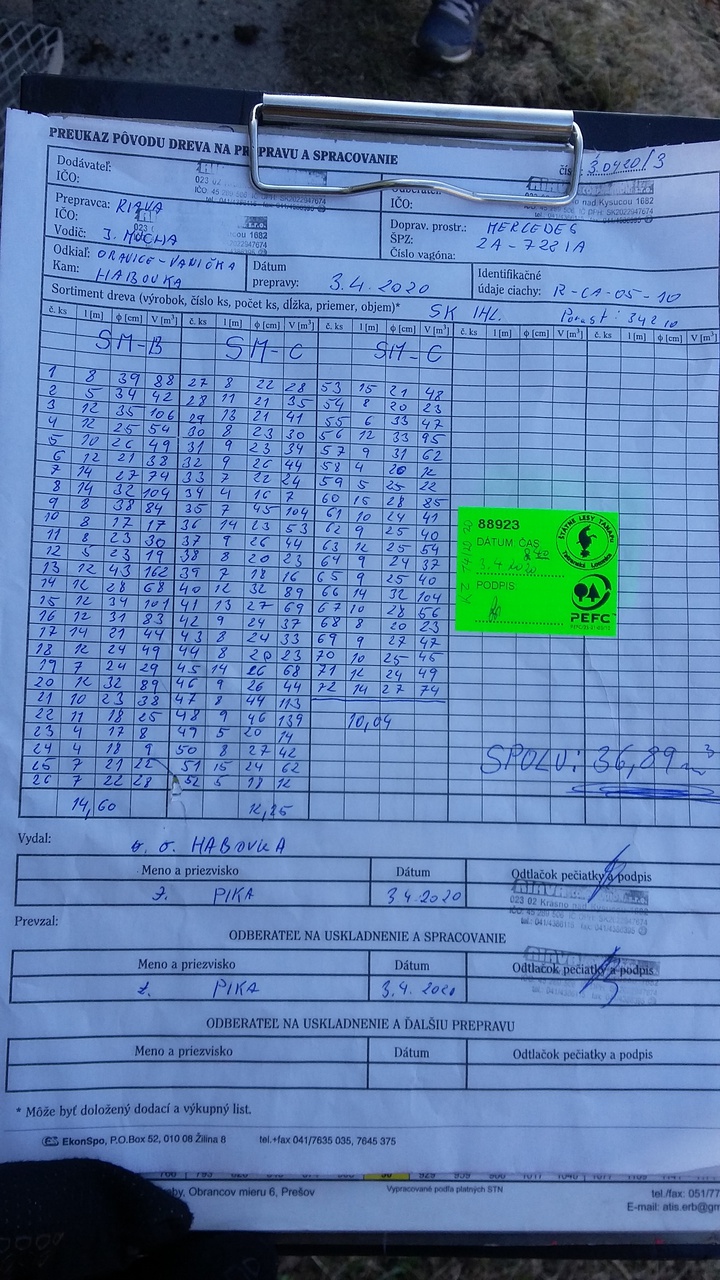 PREUKAZ PÔVODU DREVA NA PREPRAVU A SPRACOVANIE
čís.: 30420/3
Dodávateľ:
IČO:
023 02
IČO:
Prepravca: RIAVA
IČO:
Vodič: J. MUCHA
Doprav. prostr.: MERCEDES
ŠPZ: ZA-728IA
Číslo vagóna:
Odkiaľ: ORAVICE-VANIČKA
Kam: HABOVKA
Dátum
prepravy: 3.4.2020
Identifikačné
údaje ciachy: R-CA-05-10
Sortiment dreva (výrobok, číslo ks, počet ks, dĺžka, priemer, objem)* SK IHL. Porast: 342 10
č. ks l [m] ϕ [cm] V [m³] č. ks l [m] ϕ [cm] V [m³] č. ks l [m] ϕ [cm] V [m³] č. ks l [m] ϕ [cm] V [m³] č. ks l [m] ϕ [cm] V [m³]
SM-B SM-C SM-C
1 8 39 88 27 8 22 28 53 15 21 48
2 5 34 42 28 11 21 35 54 8 20 23
3 12 35 106 29 13 21 41 55 6 33 47
4 12 25 54 30 8 23 30 56 12 33 95
5 10 26 49 31 9 23 34 57 9 31 62
6 12 21 38 32 9 26 44 58 4 20 12
7 14 27 74 33 7 22 24 59 5 25 22
8 14 32 104 34 4 16 7 60 15 28 85
9 8 38 84 35 7 45 104 61 10 24 41
10 8 17 17 36 14 23 53 62 9 25 40
11 8 23 30 37 9 26 44 63 12 25 54
12 5 23 19 38 8 20 23 64 9 24 37
13 12 43 162 39 7 18 16 65 9 25 40
14 12 28 68 40 12 32 89 66 14 32 104
15 12 34 101 41 13 27 69 67 10 28 56
16 12 31 83 42 9 24 37 68 8 20 23
17 14 21 44 43 8 24 33 69 9 27 47
18 12 24 49 44 8 20 23 70 10 25 45
19 7 24 29 45 14 26 68 71 12 24 49
20 12 32 89 46 9 26 44 72 14 27 74
21 10 23 38 47 8 44 113
22 11 18 25 48 9 46 139 10,04
23 4 17 8 49 5 20 14
24 4 18 9 50 8 27 42
25 7 21 22 51 15 24 62
26 7 22 28 52 5 18 12
14,60 12,25
SPOLU: 36,89 m³
88923
DÁTUM, ČAS
3.4.2020
PODPIS
ŠTÁTNE LESY TANAPU
Tatranská Lomnica
PEFC
Vydal: HABOVKA
Meno a priezvisko Dátum Odtlačok pečiatky a podpis
PIKA 3.4.2020
023 02 Krásno nad
Prevzal:
ODBERATEĽ NA USKLADNENIE A SPRACOVANIE
Meno a priezvisko Dátum Odtlačok pečiatky a podpis
PIKA 3.4.2020
ODBERATEĽ NA USKLADNENIE A ĎALŠIU PREPRAVU
Meno a priezvisko Dátum Odtlačok pečiatky a podpis
* Môže byť doložený dodací a výkupný list.
EkonSpo, P.O.Box 52, 010 08 Žilina 8 tel.+fax 041/7635 035, 7645 375
Obrancov mieru 6, Prešov Vypracované podľa platných STN tel./fax: 051/77
E-mail: atis.erb@gm